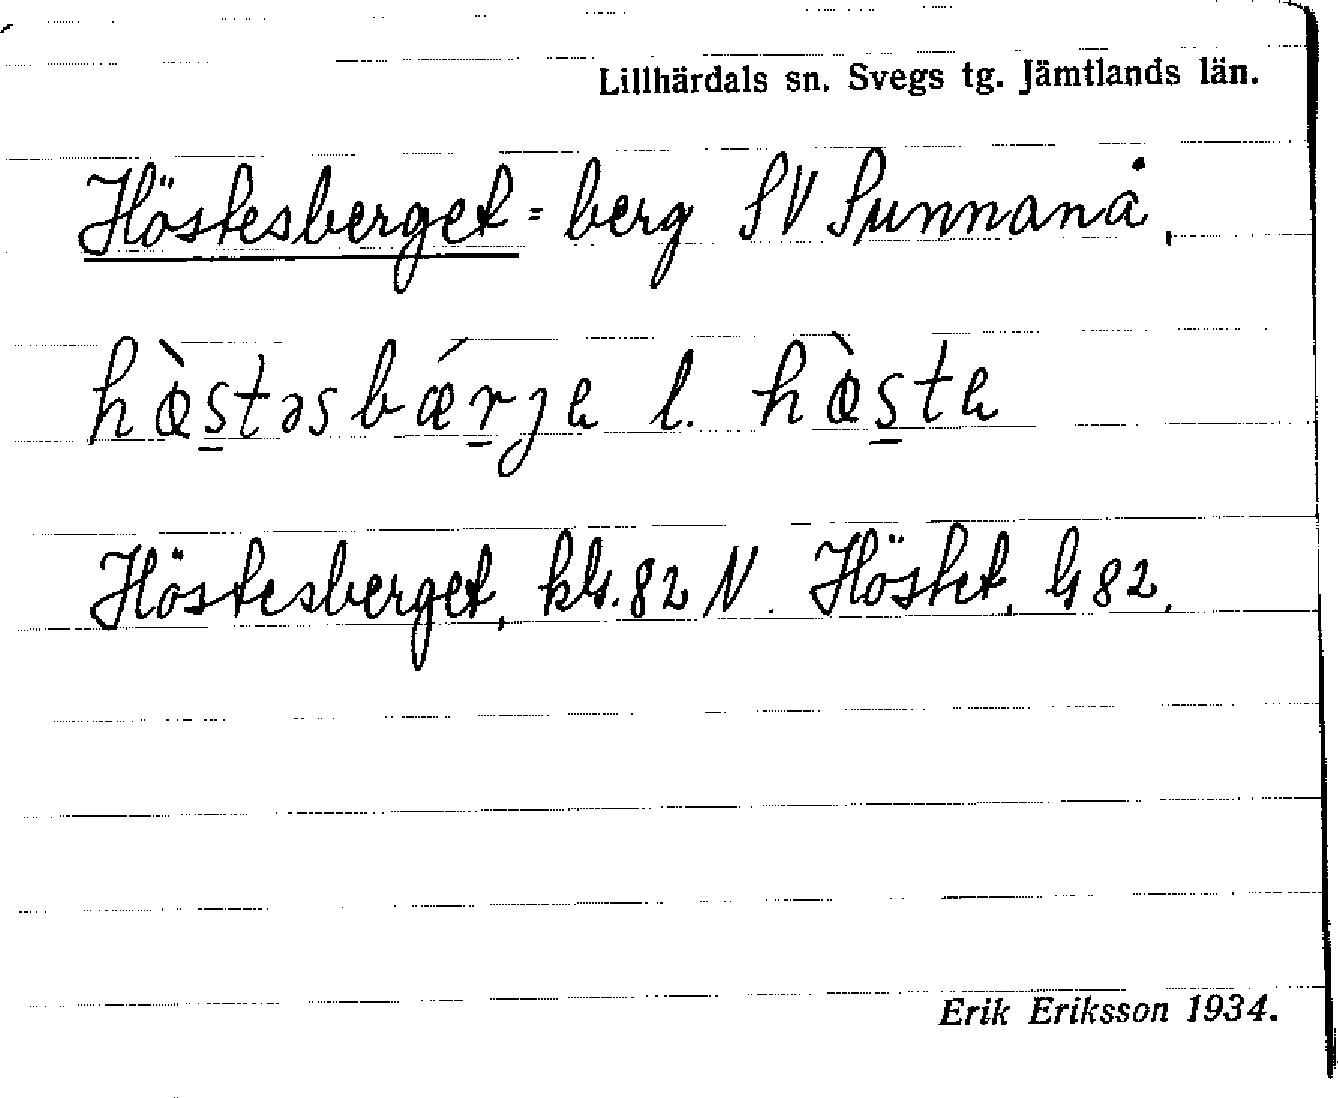 Lillhärdals sn. Svegs tg. Jämtlands län.
Höstesberget = berg SV Sunnanå,
hœ̀s̲təsbǽr̲je l. hœ̀s̲te
Höstesberget, kls. 82 N. Höstet, G 82.
Erik Eriksson 1934.